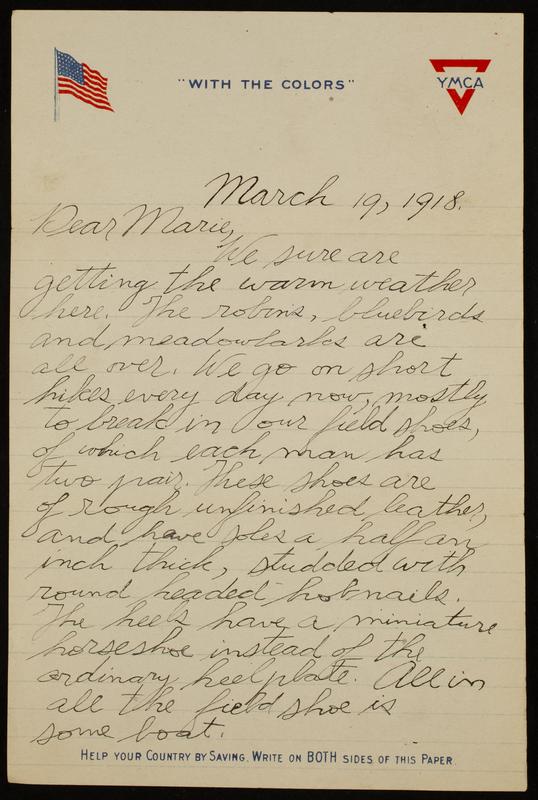 "WITH THE COLORS"
YMCA
March 19, 1918.
Dear Marie,
We sure are
getting the warm weather
here. The robins, bluebirds
and meadowlarks are
all over. We go on short
hikes every day now, mostly
to break in our field shoes,
of which each man has
two pair. These shoes are
of rough unfinished leather,
and have soles a half an
inch thick, studded with
round headed hobnails.
The heels have a miniature
horseshoe instead of the
ordinary heel plate. All in
all the field shoe is
some boat.
HELP YOUR COUNTRY BY SAVING. WRITE ON BOTH SIDES OF THIS PAPER